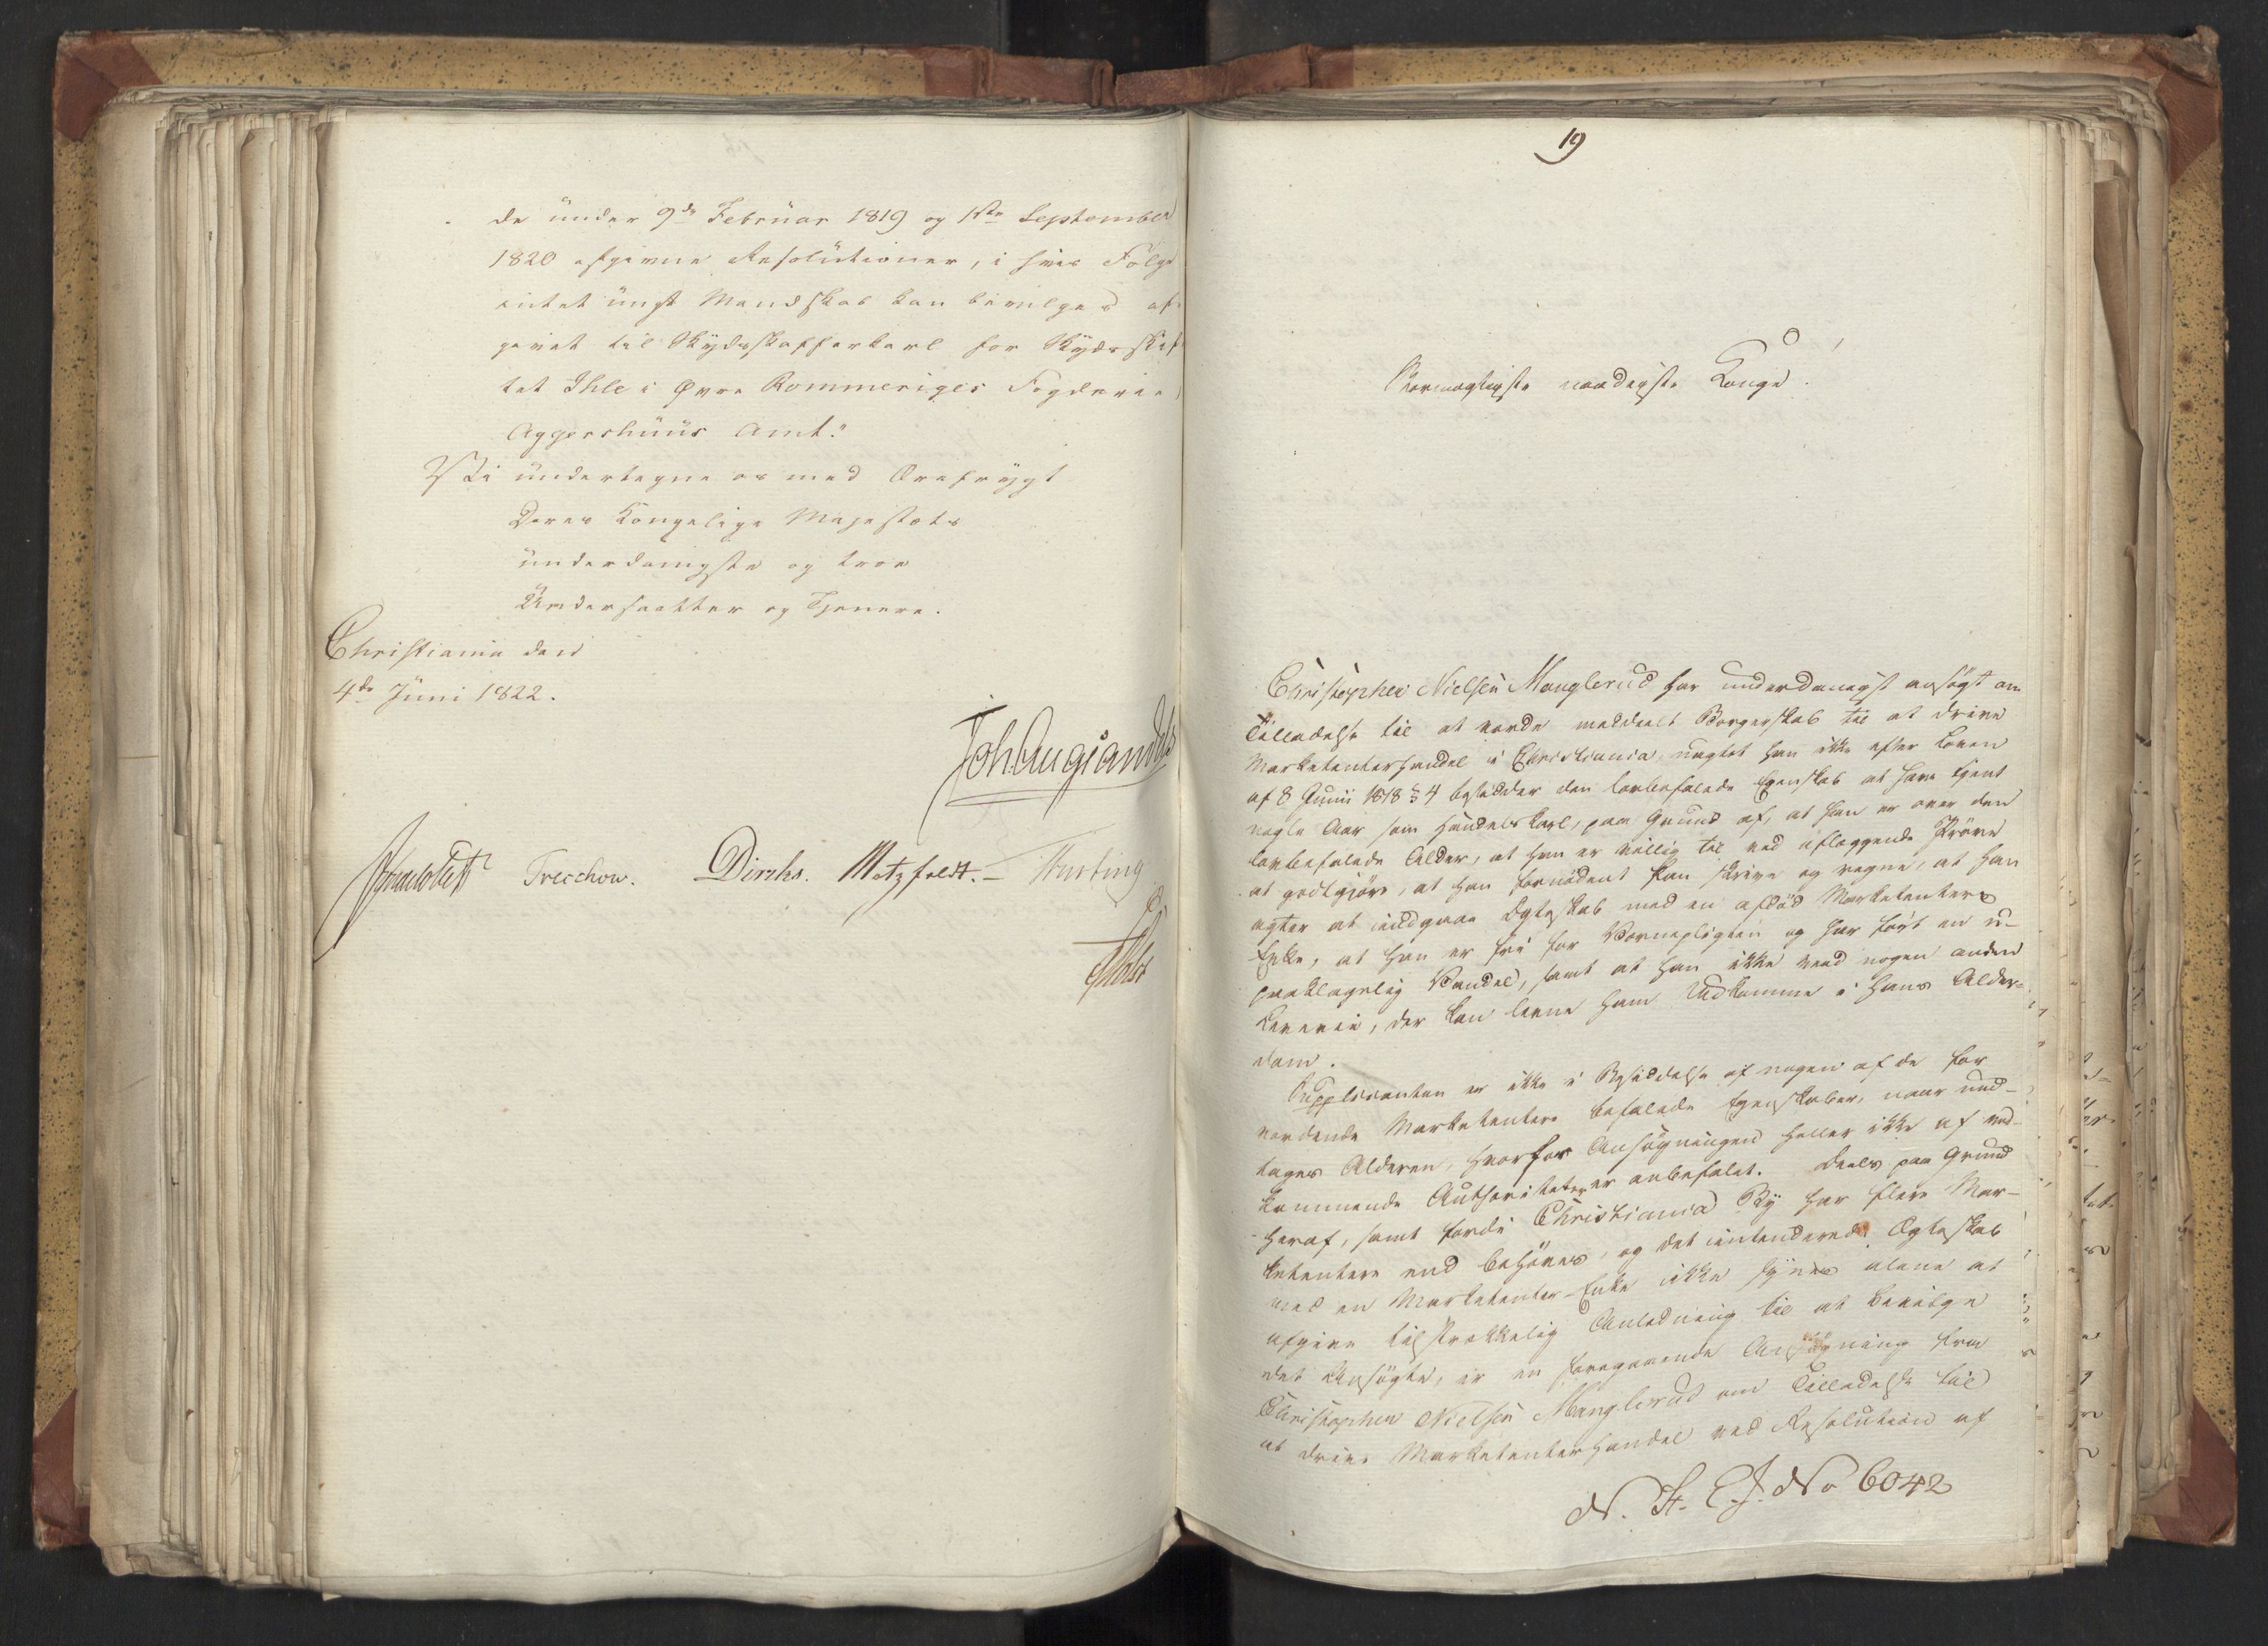 de under 9de Februar 1819 og 1ste September
1820 afgivne Resolutioner, i hvis Følge
intet ungt Mandskab kan bevilges af-
givet til Skydsskafferkarl for Skydsskif-
tet Ihle i Øvre Rommeriges Fogderie
Aggershuus Amt."
Vi undertegne os med Ærefrygt
Deres Kongelige Majestæts
underdanigste og troe
Undersaatter og Tjenere.
Christiania den
4de Juni 1822.
Joh. Aug. Sandels
Treschow. Diriks. Motzfeldt.
Holst
19
Stormægtigste naadigste Konge!
Christopher Nielsen Manglerud har underdanigst ansøgt om
Tilladelse til at vorde meddeelt Borgerskab til at drive
Marketenterhandel i Christiania, uagtet han ikke efter Loven
af 8 Juni 1818 § 4 besidder den lovbefalede Egenskab at have tjent
nogle Aar som Handelskarl, paa Grund af, at han er over den
lovbefalede Alder, at han er villig til ved aflæggende Prøve
at godtgjøre, at han fornødent kan skrive og regne, at han
agter at indgaae Ægteskab med en afdød Marketenters
Enke, at han er fri for Værnepligten og har ført en u-
paaklagelig Vandel, samt at han ikke veed nogen anden
Levevei, der kan levne ham Udkomme i hans Alder-
dom.
Supplicanten er ikke i Besiddelse af nogen af de for
vordende Marketentere befalede Egenskaber, naar und-
tages Alderen, hvorfor Ansøgningen heller ikke af ved-
kommende Authoriteter er anbefalet. Deels paa Grund
heraf, samt fordi Christiania By har flere Mar-
ketentere end behøves, og det intenderede Ægteskab
med en Marketenter-Enke ikke synes alene at
afgive tilstrækkelig Anledning til at bevilge
det Ansøgte, er en foregaaende Ansøgning fra
Christopher Nielsen Manglerud om Tilladelse til
at drive Marketenterhandel ved Resolution af
N. St. E. J. No 6042